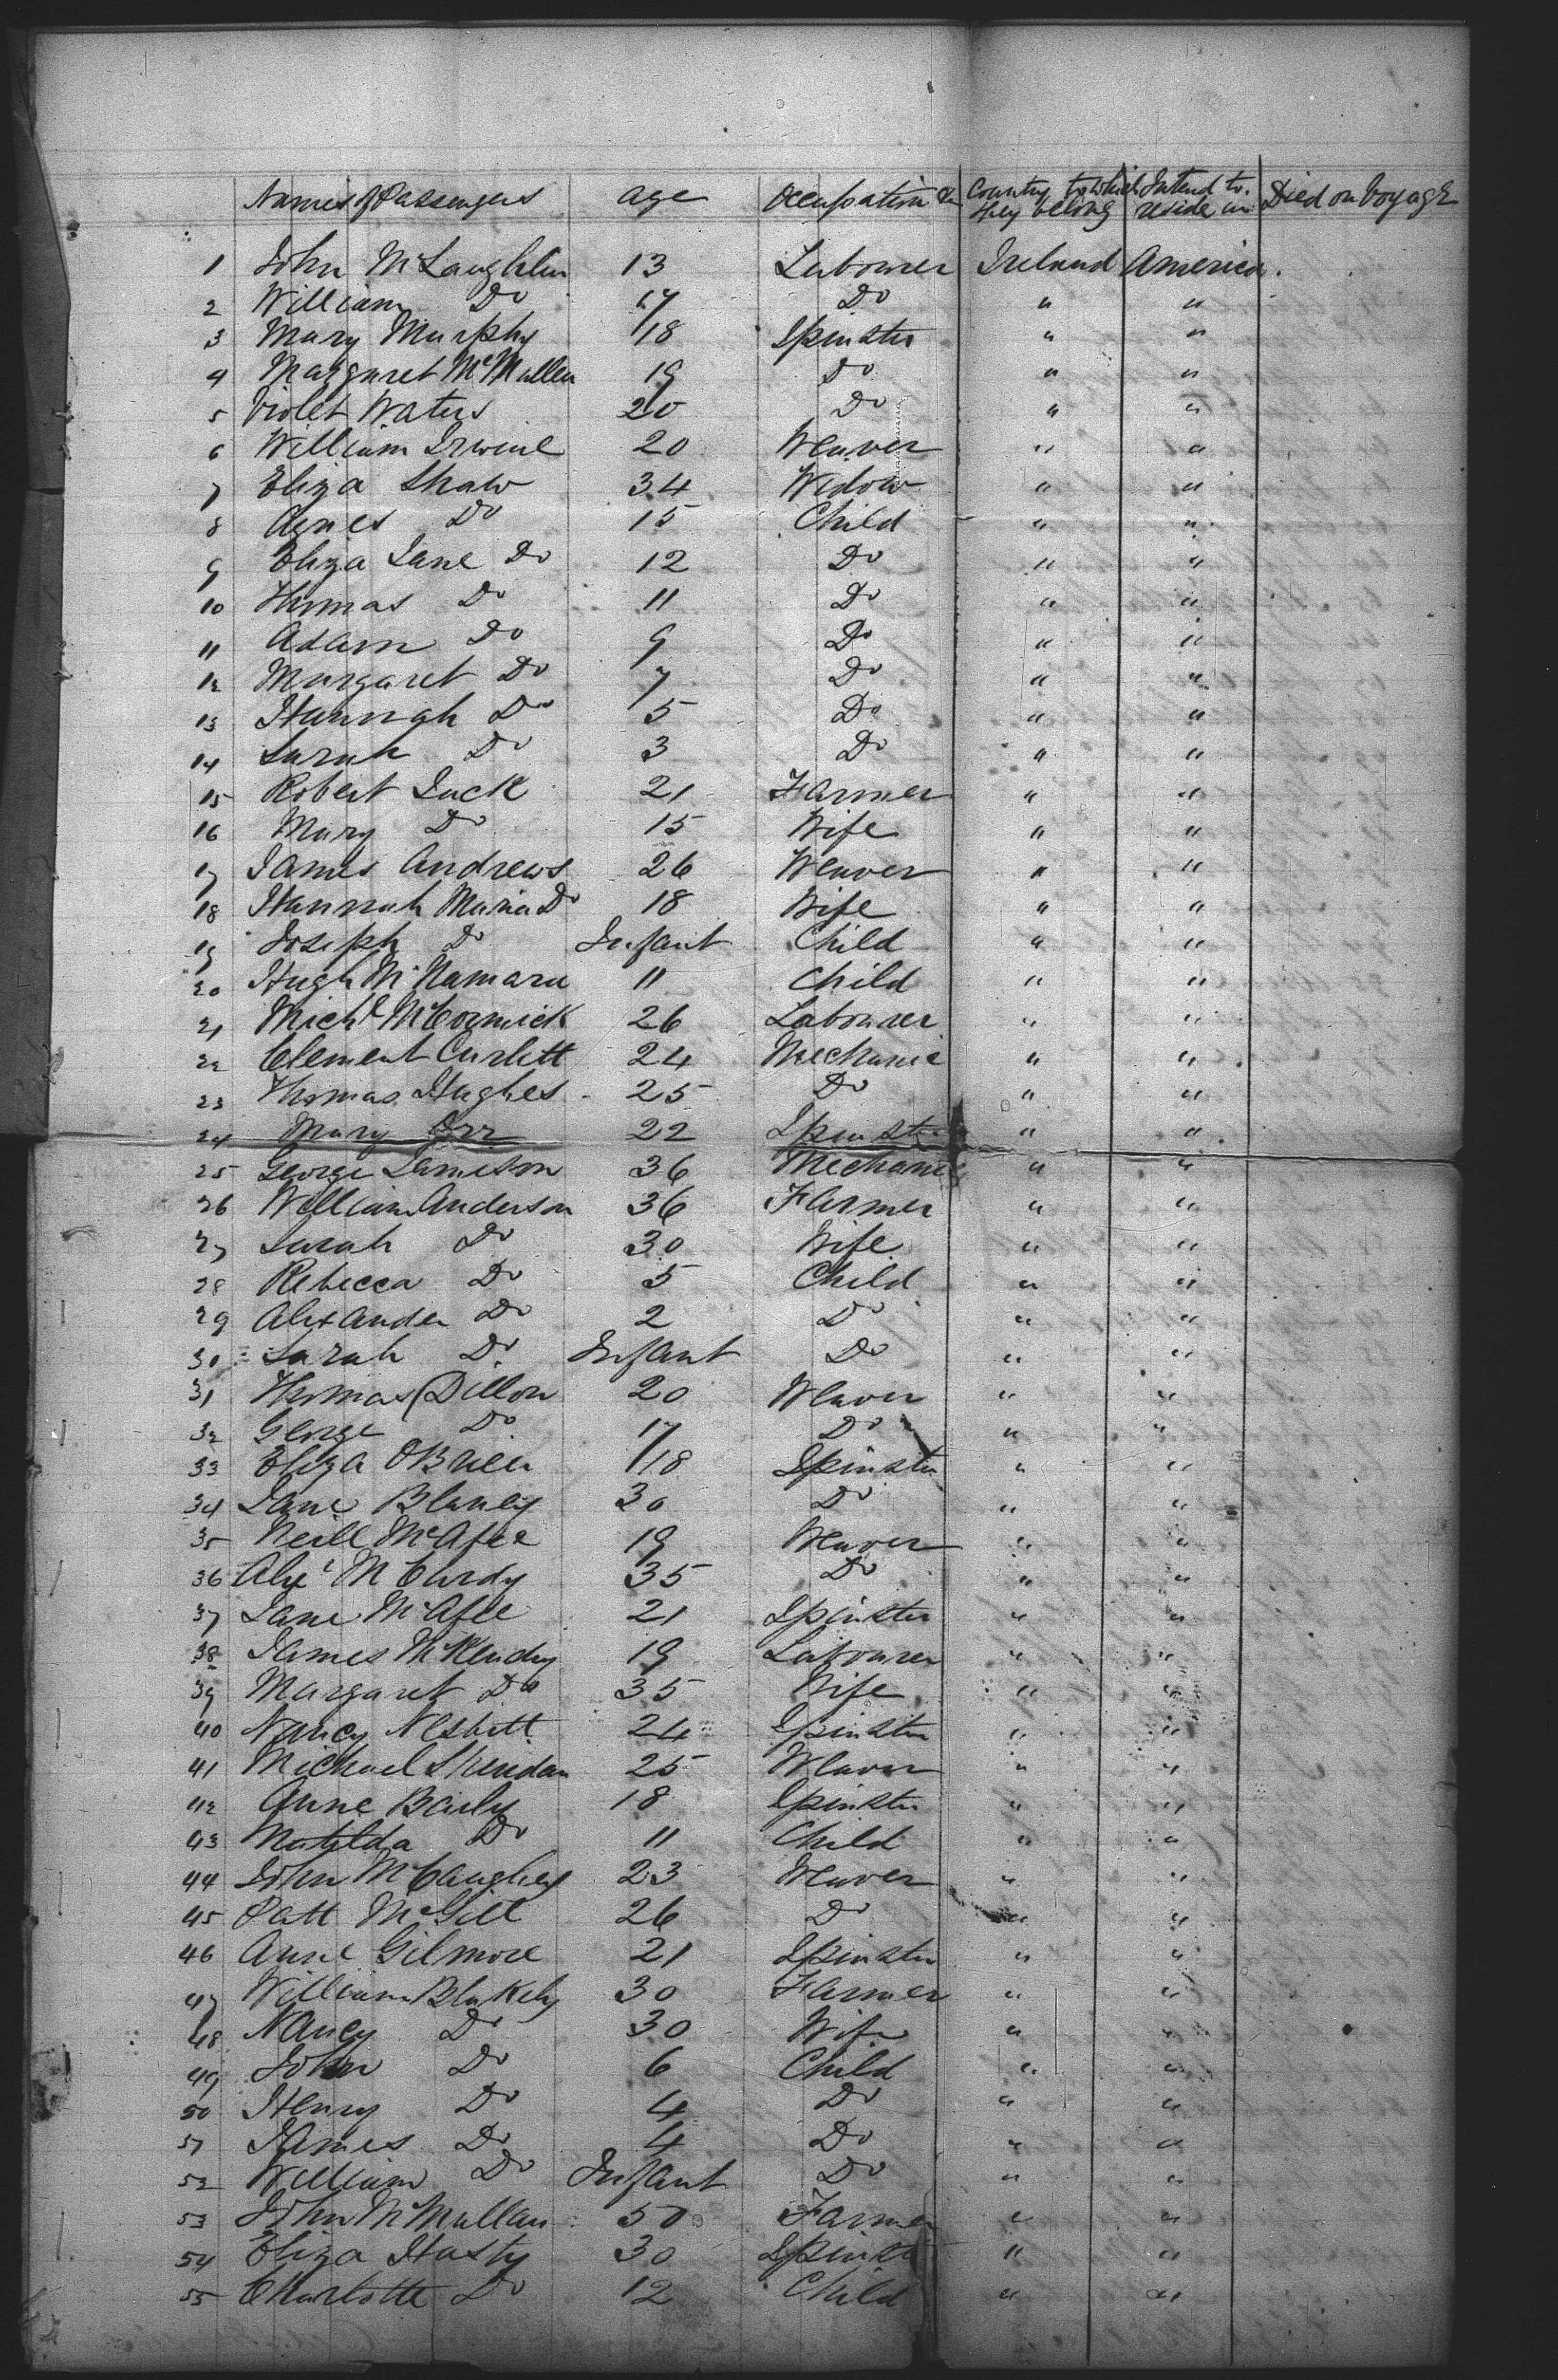 Names of Passengers Age Occupation &c Country to which they belong Intend to reside in Died on Voyage
1 John McLaughlin 13 Labourer Ireland America.
2 William Do 17 Do " "
3 Mary Murphy 18 Spinster " "
4 Margaret McMullen 19 Do " "
5 Violet Waters 20 Do " "
6 William Irwine 20 Weaver " "
7 Eliza Shaw 34 Widow " "
8 Agnes Do 15 Child " "
9 Eliza Jane Do 12 Do " "
10 Thomas Do 11 Do " "
11 Adam Do 9 Do " "
12 Margaret Do 7 Do " "
13 Hannah Do 5 Do " "
14 Sarah Do 3 Do " "
15 Robert Luck 21 Farmer " "
16 Mary Do 15 Wife " "
17 James Andrews 26 Weaver " "
18 Hannah Maria Do 18 Wife " "
19 Joseph Do Infant Child " "
20 Hugh McNamara 11 Child " "
21 Michl McCormick 26 Labourer " "
22 Clement Curlitt 24 Mechanic " "
23 Thomas Hughes 25 Do " "
24 Mary Orr 22 Spinster " "
25 George Jameson 36 Mechanic " "
26 William Anderson 36 Farmer " "
27 Sarah Do 30 Wife " "
28 Rebecca Do 5 Child " "
29 Alexander Do 2 Do " "
30 Sarah Do Infant Do " "
31 Thomas Dillon 20 Weaver " "
32 George Do 17 Do " "
33 Eliza OBrien 18 Spinster " "
34 Jane Blaney 30 Do " "
35 Neill McAfee 19 Weaver " "
36 Alexr McCurdy 35 Do " "
37 Jane McAfee 21 Spinster " "
38 James McKendry 19 Labourer " "
39 Margaret Do 35 Wife " "
40 Nancy Nesbitt 24 Spinster " "
41 Michael Sheridan 25 Weaver " "
42 Anne Baily 18 Spinster " "
43 Matilda Do 11 Child " "
44 John McCaughey 23 Weaver " "
45 Patt McGill 26 Do " "
46 Anne Gilmore 21 Spinster " "
47 William Blakely 30 Farmer " "
48 Nancy Do 30 Wife " "
49 John Do 6 Child " "
50 Henry Do 4 Do " "
51 James Do 4 Do " "
52 William Do Infant Do " "
53 John McMullan 50 Farmer " "
54 Eliza Hasty 30 Spinster " "
55 Charlotte Do 12 Child " "